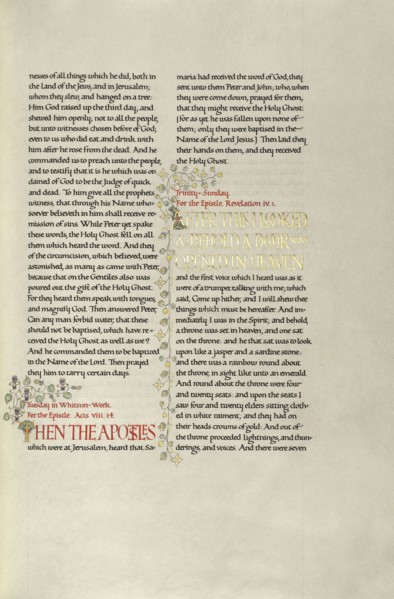 nesses of all things which he did, both in
the Land of the Jews, and in Jerusalem;
whom they slew, and hanged on a tree:
Him God raised up the third day, and
shewed him openly; not to all the people,
but unto witnesses chosen before of God;
even to us who did eat and drink with
him after he rose from the dead. And he
commanded us to preach unto the people,
and to testify that it is he which was or-
dained of God to be the Judge of quick
and dead. To him give all the prophets
witness, that through his Name who-
soever believeth in him shall receive re-
mission of sins. While Peter yet spake
these words, the Holy Ghost fell on all
them which heard the word. And they
of the circumcision, which believed, were
astonished, as many as came with Peter,
because that on the Gentiles also was
poured out the gift of the Holy Ghost.
For they heard them speak with tongues,
and magnify God. Then answered Peter,
Can any man forbid water, that these
should not be baptised, which have re-
ceived the Holy Ghost as well as we?
And he commanded them to be baptized
in the Name of the Lord. Then prayed
they him to tarry certain days.
Tuesday in Whitsun-Week.
For the Epistle. Acts viii. 14.
THEN THE APOSTLES
which were at Jerusalem, heard that Sa-
maria had received the word of God, they
sent unto them Peter and John; who, when
they were come down, prayed for them,
that they might receive the Holy Ghost:
(for as yet he was fallen upon none of
them; only they were baptised in the
Name of the Lord Jesus.) Then laid they
their hands on them, and they received
the Holy Ghost.
Trinity-Sunday.
For the Epistle. Revelation iv. 1.
AFTER THIS I LOOKED
& BEHOLD A DOOR WAS
OPENED IN HEAVEN
and the first voice which I heard was as it
were of a trumpet talking with me; which
said, Come up hither, and I will shew thee
things which must be hereafter. And im-
mediately I was in the Spirit; and behold,
a throne was set in heaven, and one sat
on the throne: and he that sat was to look
upon like a jasper and a sardine stone:
and there was a rainbow round about
the throne, in sight like unto an emerald.
And round about the throne were four
and twenty seats: and upon the seats I
saw four and twenty elders sitting, cloth-
ed in white raiment; and they had on
their heads crowns of gold: And out of
the throne proceeded lightnings, and thun-
derings, and voices. And there were seven